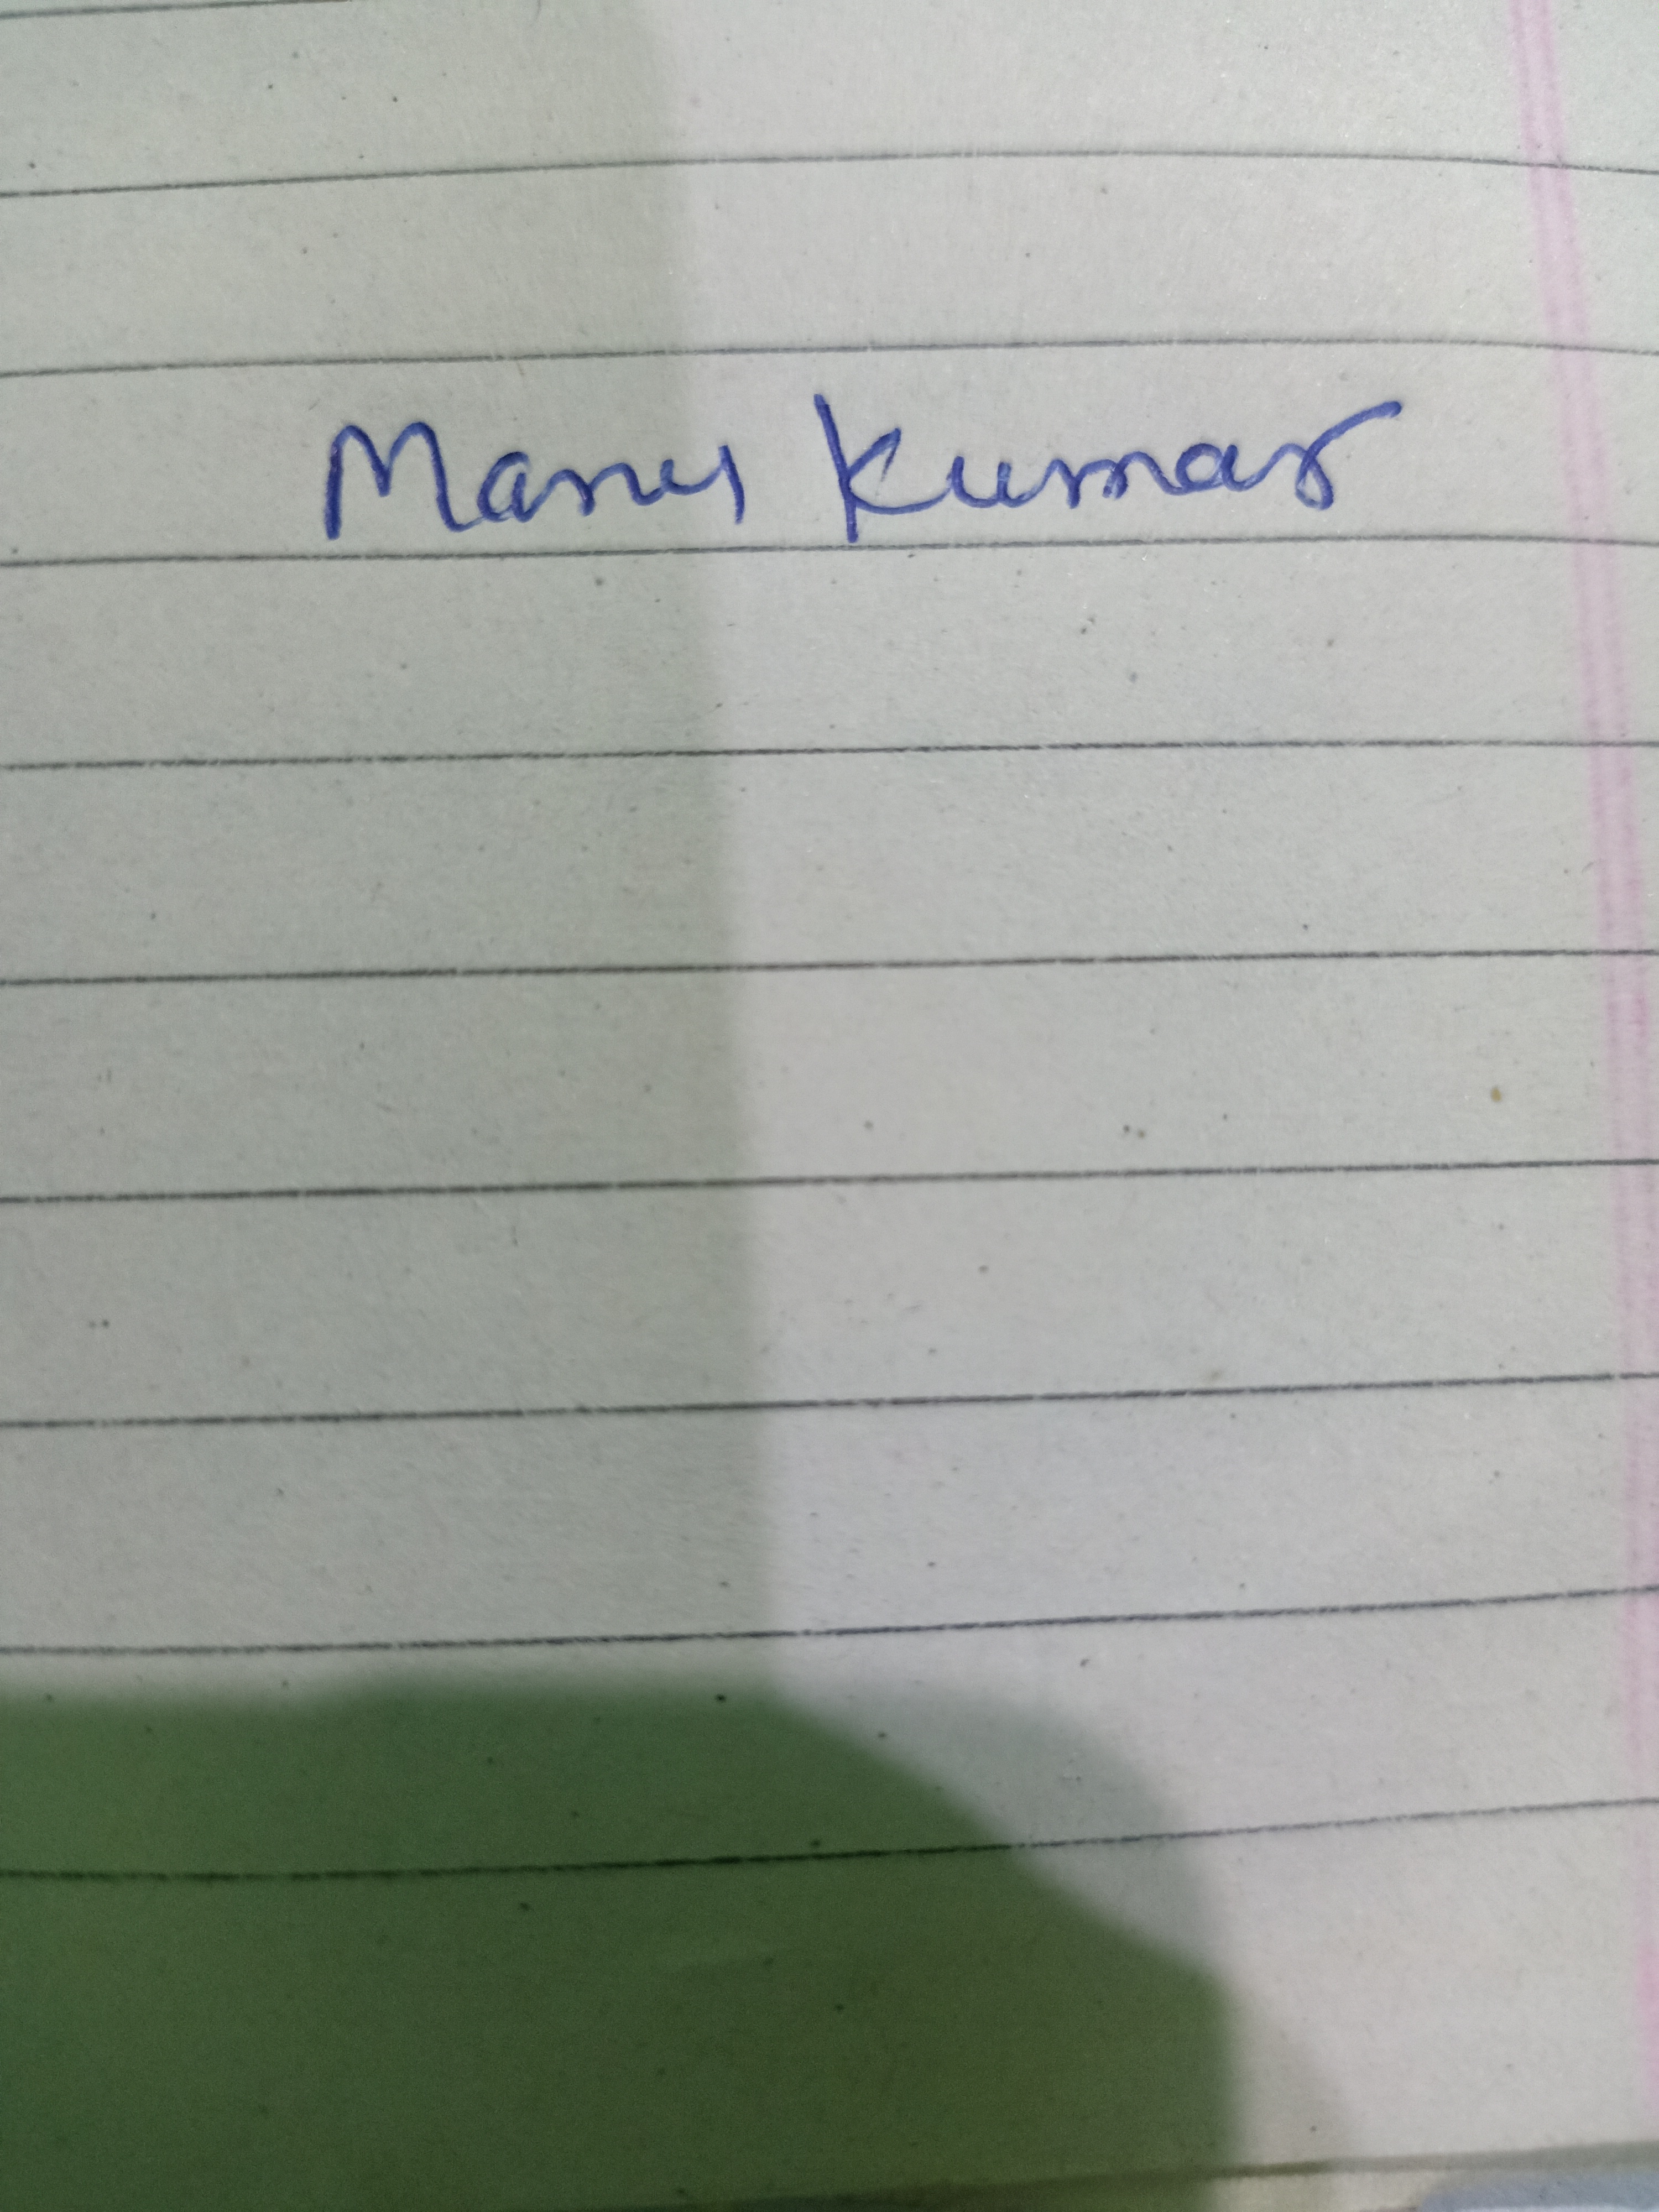 Manu Kumar